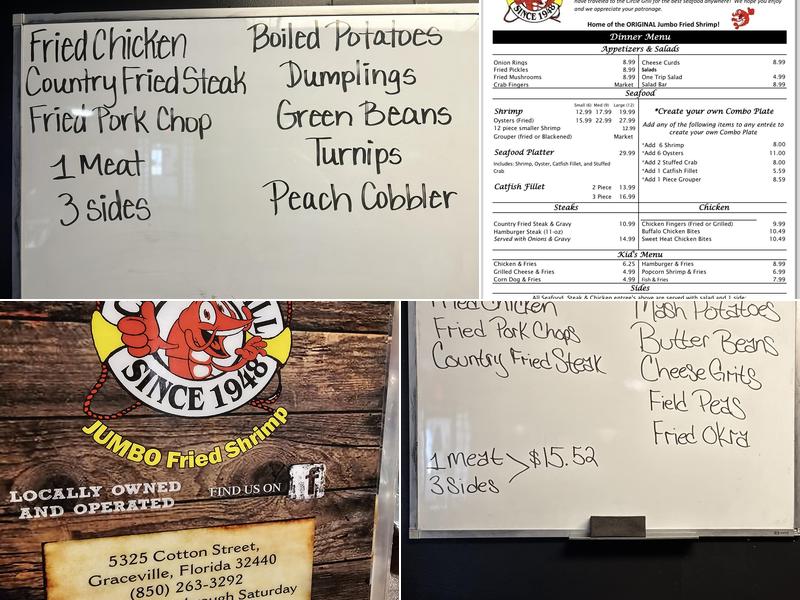 Fried Chicken
Country Fried Steak
Fried Pork Chop
1 Meat
3 sides
Boiled Potatoes
Dumplings
Green Beans
Turnips
Peach Cobbler
SINCE 1948
have traveled to the Circle Grill for the best seafood anywhere! We hope you enjoy
and we appreciate your patronage.
Home of the ORIGINAL Jumbo Fried Shrimp!
Dinner Menu
Appetizers & Salads
Onion Rings 8.99
Fried Pickles 8.99
Fried Mushrooms 8.99
Crab Fingers Market
Cheese Curds 8.99
Salads
One Trip Salad 4.99
Salad Bar 8.99
Seafood
Small (6) Med (9) Large (12)
Shrimp 12.99 17.99 19.99
Oysters (Fried) 15.99 22.99 27.99
12 piece smaller Shrimp 12.99
Grouper (fried or Blackened) Market
Seafood Platter 29.99
Includes: Shrimp, Oyster, Catfish Fillet, and Stuffed
Crab
Catfish Fillet 2 Piece 13.99
3 Piece 16.99
*Create your own Combo Plate
Add any of the following items to any entrée to
create your own Combo Plate
*Add 6 Shrimp 8.00
*Add 6 Oysters 11.00
*Add 2 Stuffed Crab 8.00
*Add 1 Catfish Fillet 5.59
*Add 1 Piece Grouper 8.59
Steaks
Country Fried Steak & Gravy 10.99
Hamburger Steak (11 oz)
Served with Onions & Gravy 14.99
Chicken
Chicken Fingers (Fried or Grilled) 9.99
Buffalo Chicken Bites 10.49
Sweet Heat Chicken Bites 10.49
Kid's Menu
Chicken & Fries 6.25
Grilled Cheese & Fries 4.99
Corn Dog & Fries 4.99
Hamburger & Fries 8.99
Popcorn Shrimp & Fries 6.99
Fish & Fries 7.99
Sides
All Seafood, Steak & Chicken entree's above are served with salad and 1 side:
SINCE 1948
JUMBO Fried Shrimp
LOCALLY OWNED
AND OPERATED
FIND US ON f
5325 Cotton Street,
Graceville, Florida 32440
(850) 263-3292
through Saturday
Fried Chicken
Fried Pork Chops
Country Fried Steak
1 meat
3 sides
$15.52
Mash Potatoes
Butter Beans
Cheese Grits
Field Peas
Fried Okra